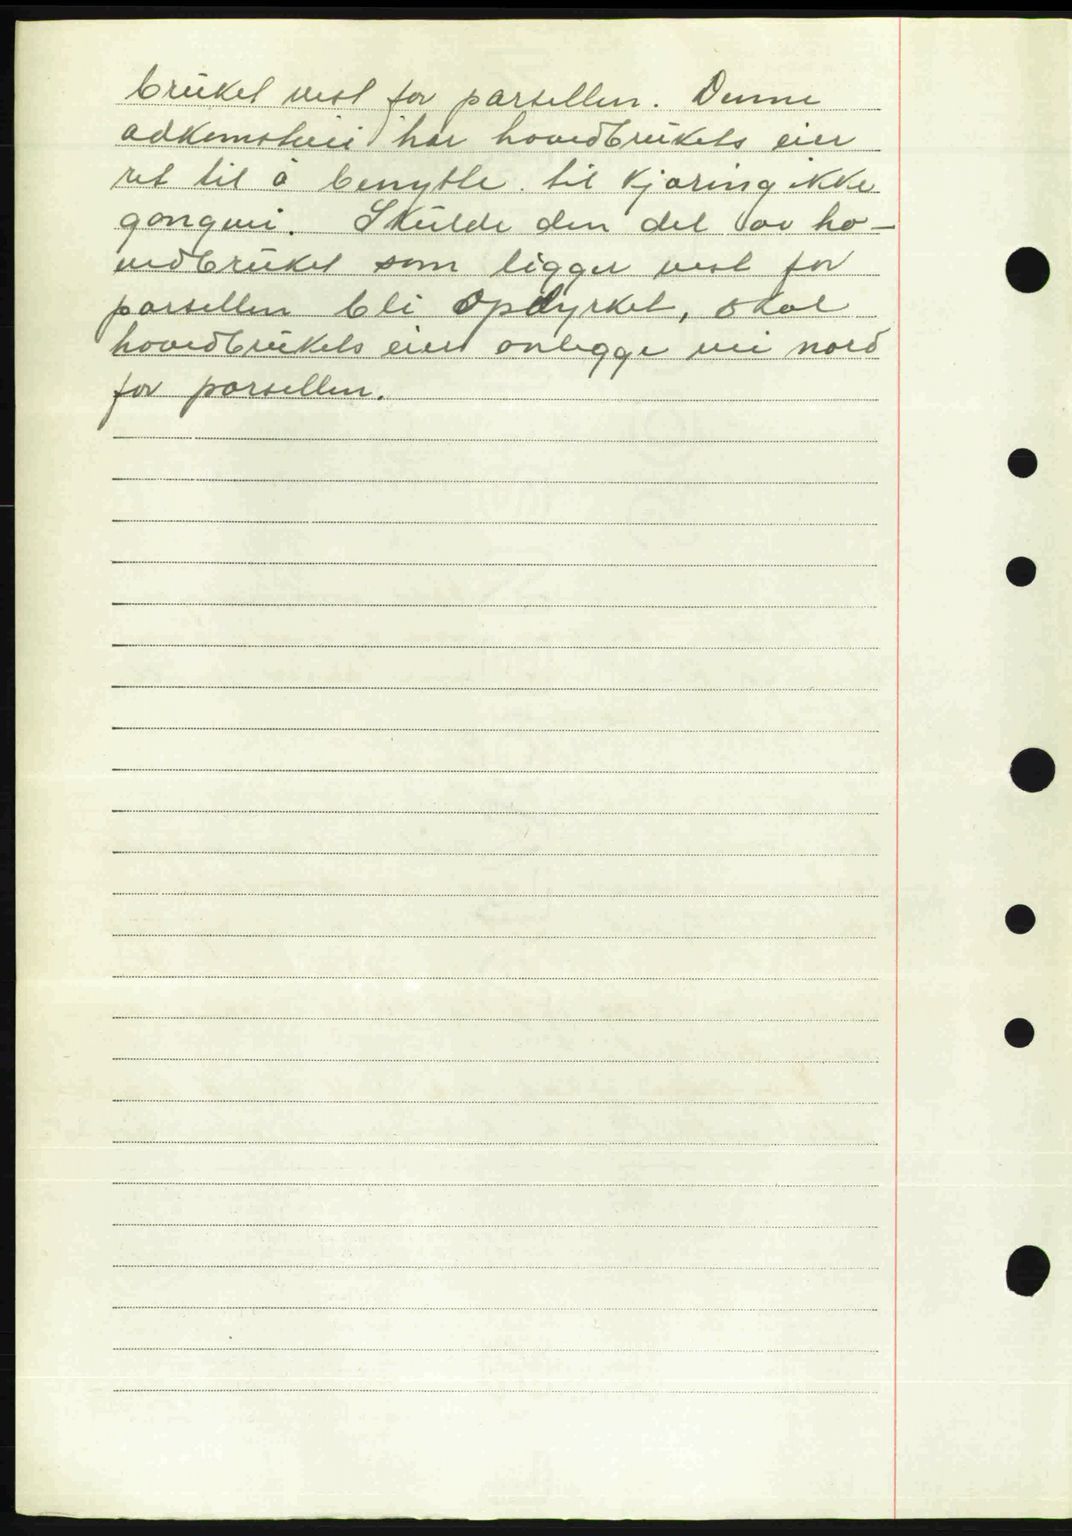 bruket vest for parsellen. Denne
adkomstvei har hovedbrukets eier
ret til å benytte til kjøring ikke
gangvei. Skulde den del av ho-
vedbruket som ligger vest for
parsellen bli opdyrket, skal
hovedbrukets eier anlegge vei nord
for parsellen.